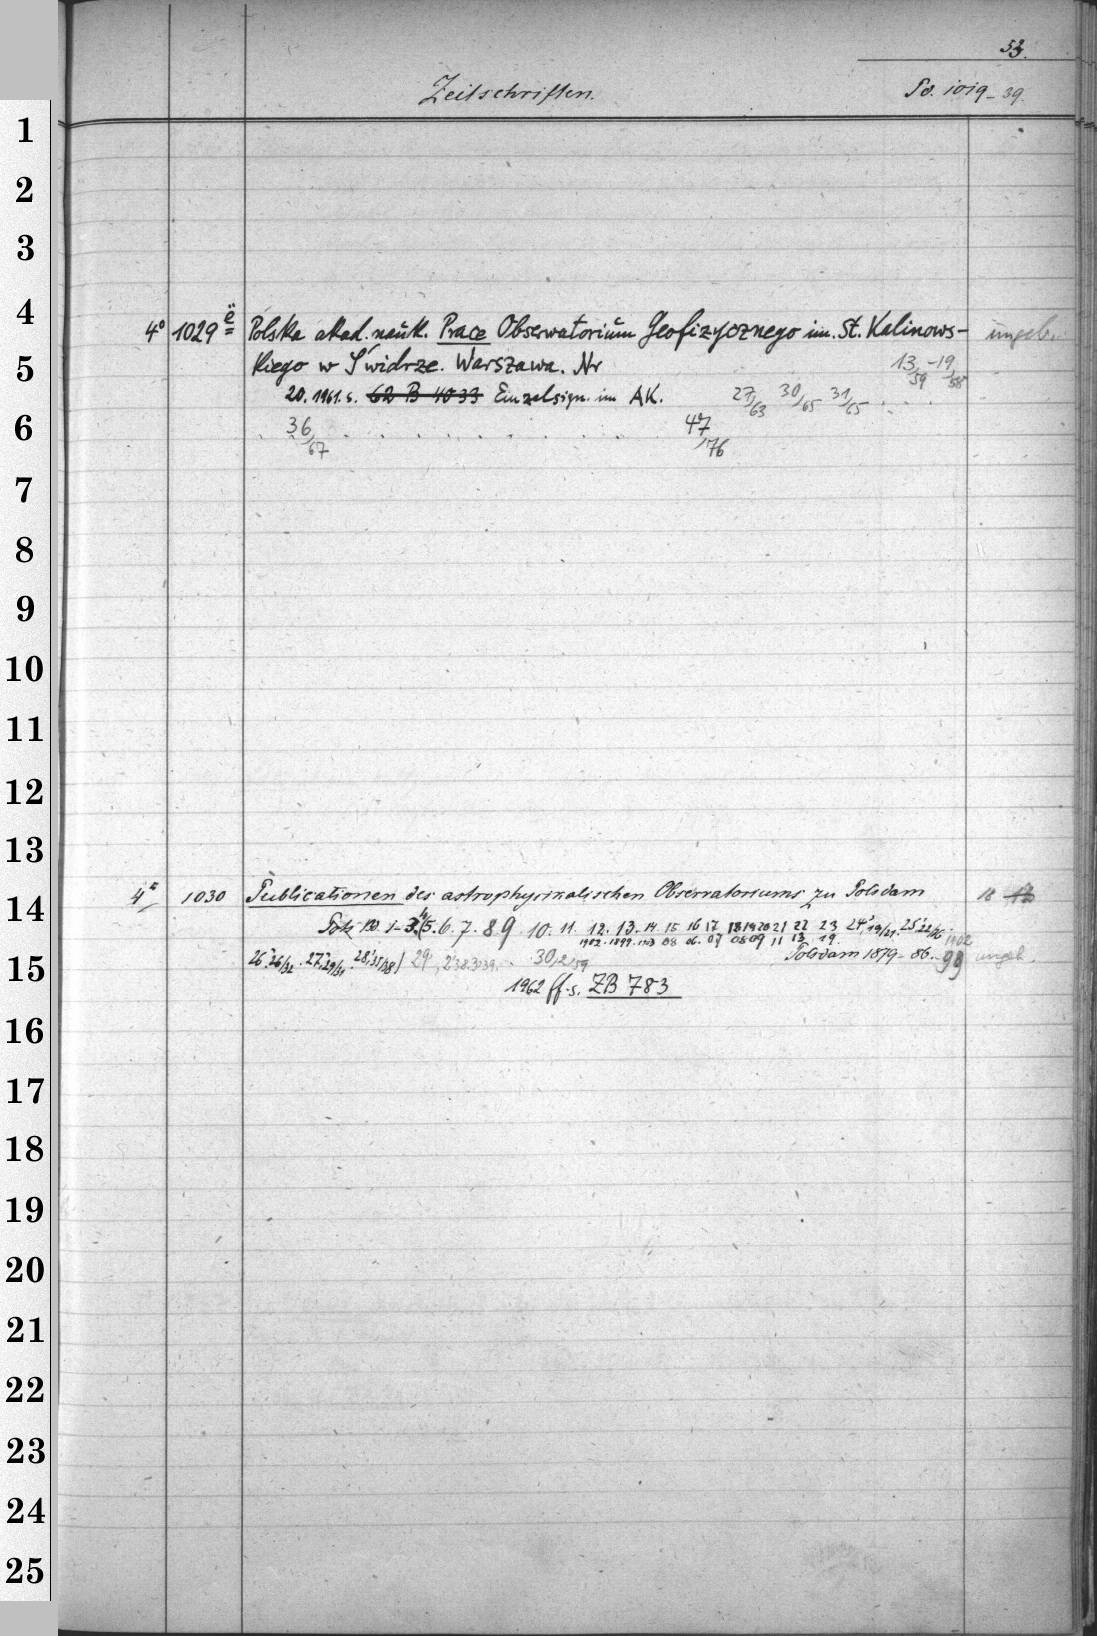 53.
Zeitschriften. Po. 1019-39.
1
2
3
4
4° 1029 ë Polska akad. nauk. Prace Obserwatorium Geofizycznego im. St. Kalinows- ungeb.
5
kiego w Świdrze. Warszawa. Nr 13/59-19/58
20. 1961. s. 62 B 4033 Einzelsign. im AK. 27/63 30/65 31/65
6
36/67 47/76
7
8
9
10
11
12
13
14
4° 1030 Publicationen des astrophysikalischen Observatoriums zu Potsdam 18
1-3. 4 5. 6. 7. 8 9 10. 11. 12. 13. 14 15 16 17 18 19 20 21 22 23 24,19/21. 25 22/26 1902
1902. 1899. 1903 08 06. 07 08 09 11 13 19.
15
26. 26/32 27. 29/31 28. 35/38 29 30, 2/59 Potsdam 1879-86. 99 ungeb.
1962 ff. s. ZB 783
16
17
18
19
20
21
22
23
24
25